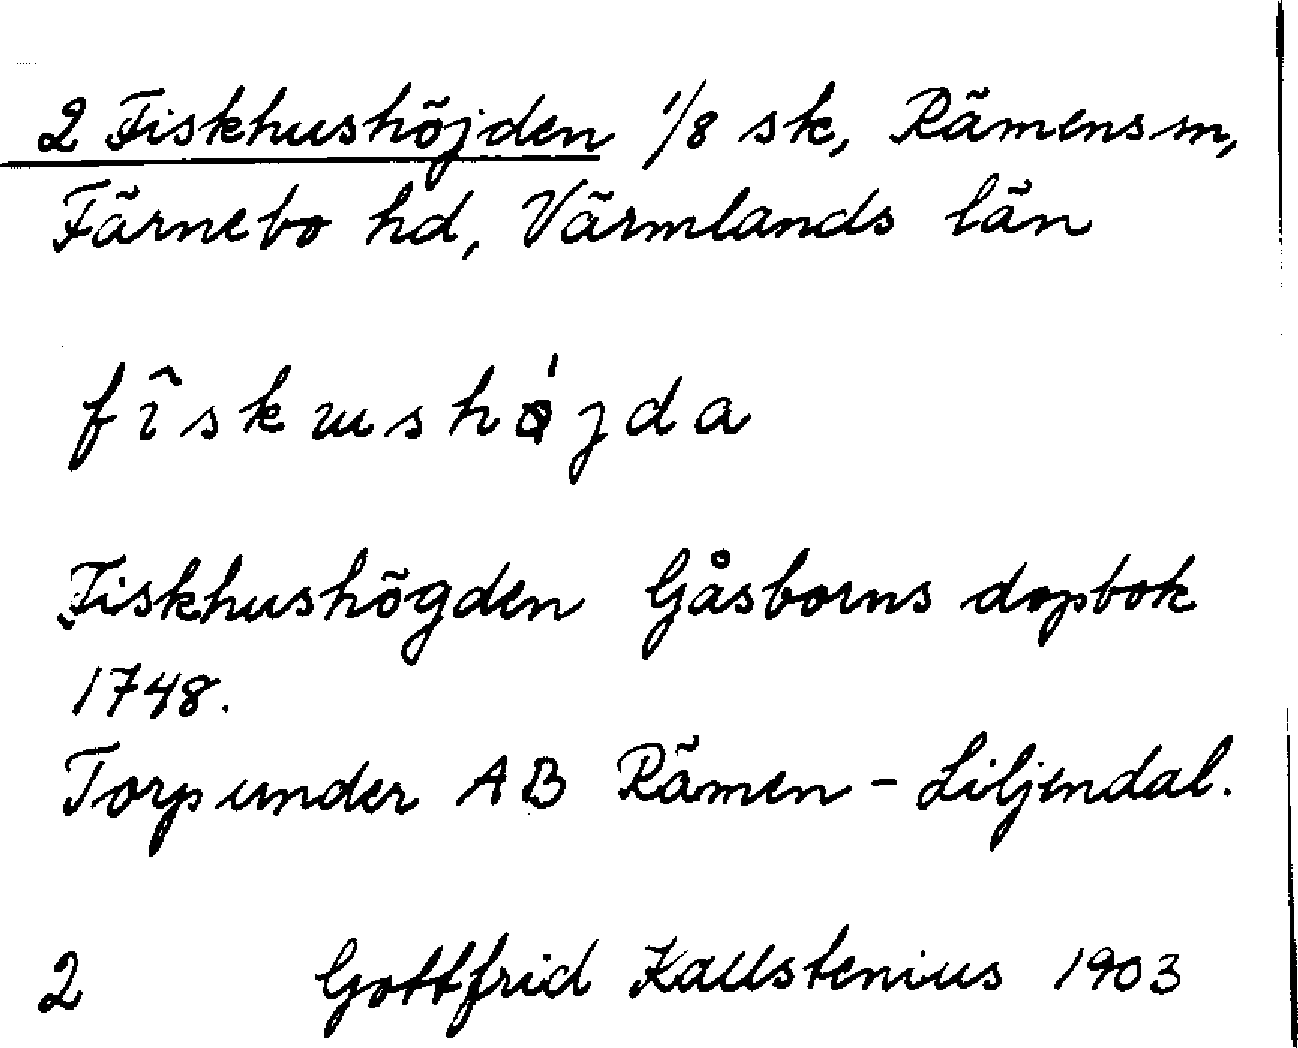 2 Fiskhushöjden 1/8 sk, Rämens sn,
Färnebo hd, Värmlands län
Fiskhushögden Gåsborns dopbok
1748.
Torp under AB Rämen - Liljendal.
2 Gottfrid Kallstenius 1903